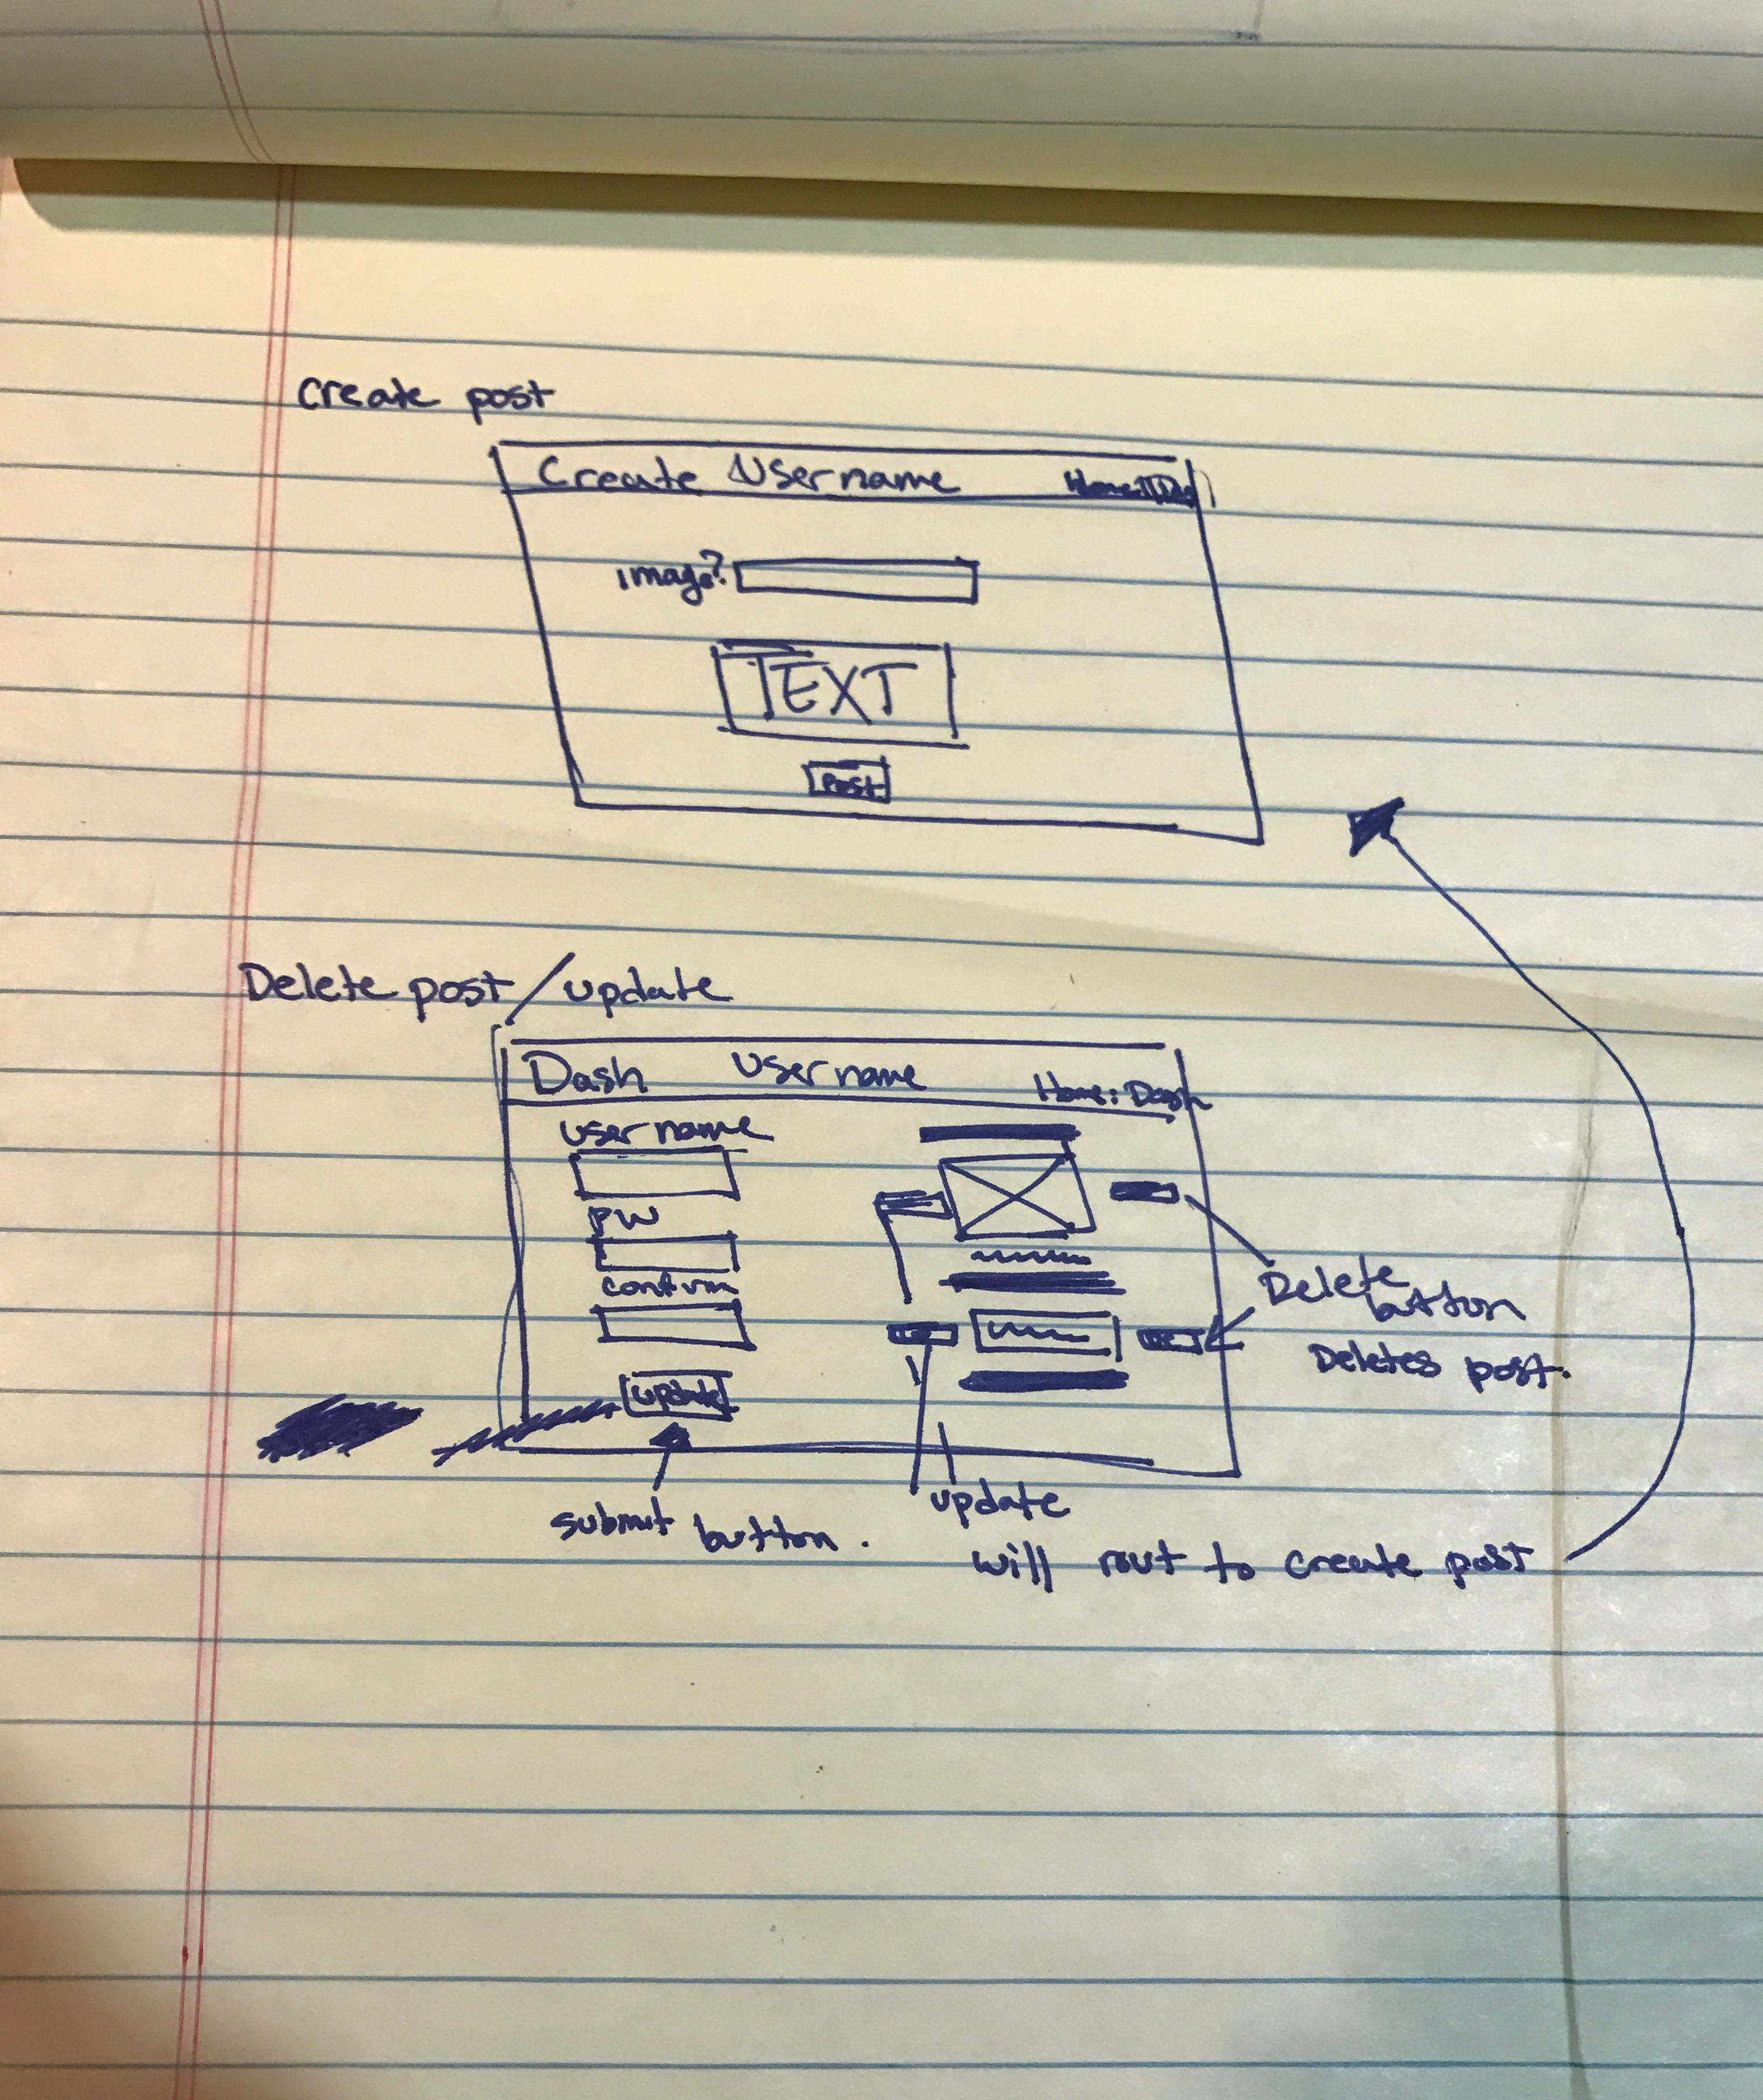 Create post
Create Username
image?
TEXT
Post
Delete post / update
Dash Username Home: Dash
username
PW
confirm
update
Delete
button
Deletes post.
submit button.
update
will rout to create post